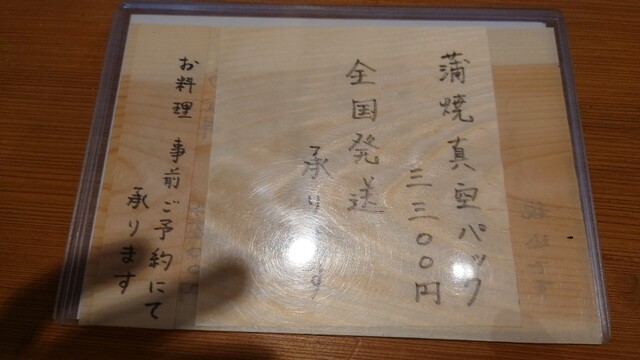 蒲焼真空パック
三三〇〇円
全国発送
承ります
お料理 事前ご予約にて
承ります